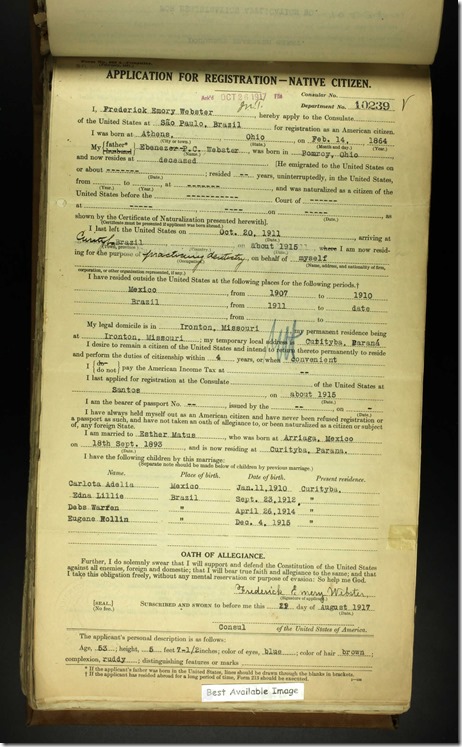 APPLICATION FOR REGISTRATION—NATIVE CITIZEN.
Consular No.
OCT 26 1917
Department No. 10239 V
I, Frederick Emory Webster, hereby apply to the Consulate
of the United States at São Paulo, Brazil for registration as an American citizen.
I was born at Athens, Ohio on Feb. 14, 1864
(City or town.) (State.) (Date.) (Year.)
My {father* husband} Ebenezer P.C. Webster, was born in Pomroy, Ohio
and now resides at deceased [He emigrated to the United States on
or about ------- resided -- years, uninterruptedly, in the United States,
from ----- to ----, at ------- and was naturalized as a citizen of the
United States before the ----------- Court of ------
at ----- ---- on -----, as
shown by the Certificate of Naturalization presented herewith].
(Certificate must be presented if applicant was born abroad.)
I last left the United States on Oct. 20, 1911, arriving at
Curityba Brazil on About 1915 where I am now resid-
ing for the purpose of practising dentistry, on behalf of myself
(Occupation.) (Name, address, and nationality of firm,
corporation, or other organization represented, if any.)
I have resided outside the United States at the following places for the following periods.†
Mexico, from 1907 to 1910
Brazil, from 1911 to date
, from to
My legal domicile is in Ironton, Missouri my permanent residence being
at Ironton, Missouri; my temporary local address Curityba, Paraná
I desire to remain a citizen of the United States and intend to return thereto permanently to reside
and perform the duties of citizenship within 4 years, or when convenient
I {do do not} pay the American Income Tax at --
I last applied for registration at the Consulate of the United States at
Santos, on about 1915
I am the bearer of passport No. --, issued by the -- on -
I have always held myself out as an American citizen and have never been refused registration or
a passport as such, and have not taken an oath of allegiance to, or been naturalized as a citizen or subject
of, any foreign State.
I am married to Esther Matus, who was born at Arriaga, Mexico
on 18th Sept. 1893, and is now residing at Curityba, Parana.
I have the following children by this marriage:
(Separate note should be made below of children by previous marriage.)
Name. Place of birth. Date of birth. Present residence.
Carlota Adelia Mexico Jan.11,1910 Curityba.
Edna Lillie Brazil Sept. 23,1912 "
Debs Warren " April 26,1914 "
Eugene Rollin " Dec. 4, 1915 "
OATH OF ALLEGIANCE.
Further, I do solemnly swear that I will support and defend the Constitution of the United States
against all enemies, foreign and domestic; that I will bear true faith and allegiance to the same; and that
I take this obligation freely, without any mental reservation or purpose of evasion: So help me God.
Frederick Emery Webster.
(Signature of applicant.)
[SEAL.] SUBSCRIBED AND SWORN to before me this day of August 1917
(No fee.) (Date.)
Consul of the United States of America.
The applicant's personal description is as follows:
Age, 53; height, 5 feet 7-1/2 inches; color of eyes, blue; color of hair brown;
complexion, ruddy; distinguishing features or marks
* If the applicant's father was born in the United States, lines should be drawn through the blanks in brackets.
† If the applicant has resided abroad for a long period of time, Form 213 should be executed.
Best Available Image